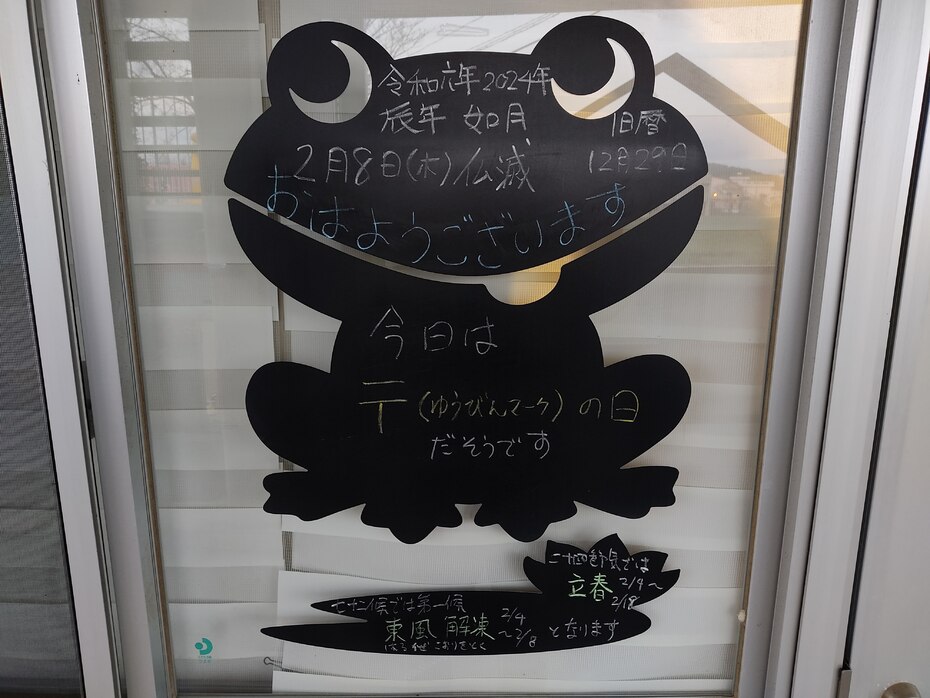 令和六年2024年
辰年 如月
旧暦
12月29日
2月8日(木)仏滅
おはようございます
今日は
〒(ゆうびんマーク)の日
だそうです
二十四節気では
立春 2/4〜
2/18
七十二候では第一候
東風 解凍 2/4〜2/8 となります
はるかぜこおりをとく